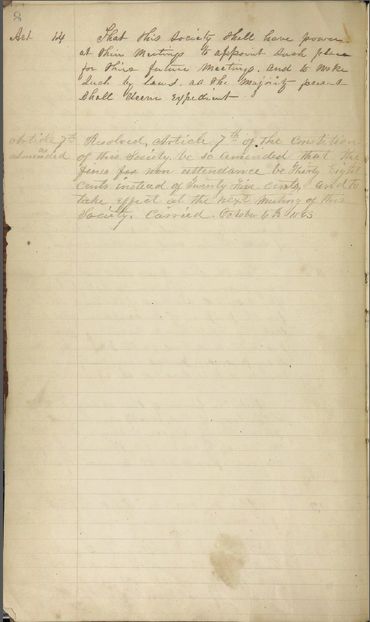 8
Art 14 That this Society Shall have power
at their Meetings to appoint Such place
for their future Meetings. and to Make
Such by Laws. as the Majority present
Shall Deem Expedient
Article 7th Resolved, Article 7th of the Constitution
as amended of this Society be so amended that the
fines for non attendance be Thirty Eight
Cents instead of Twenty Five Cents, and to
take effect at the next meeting of this
Society. Carried. October 6th 1863